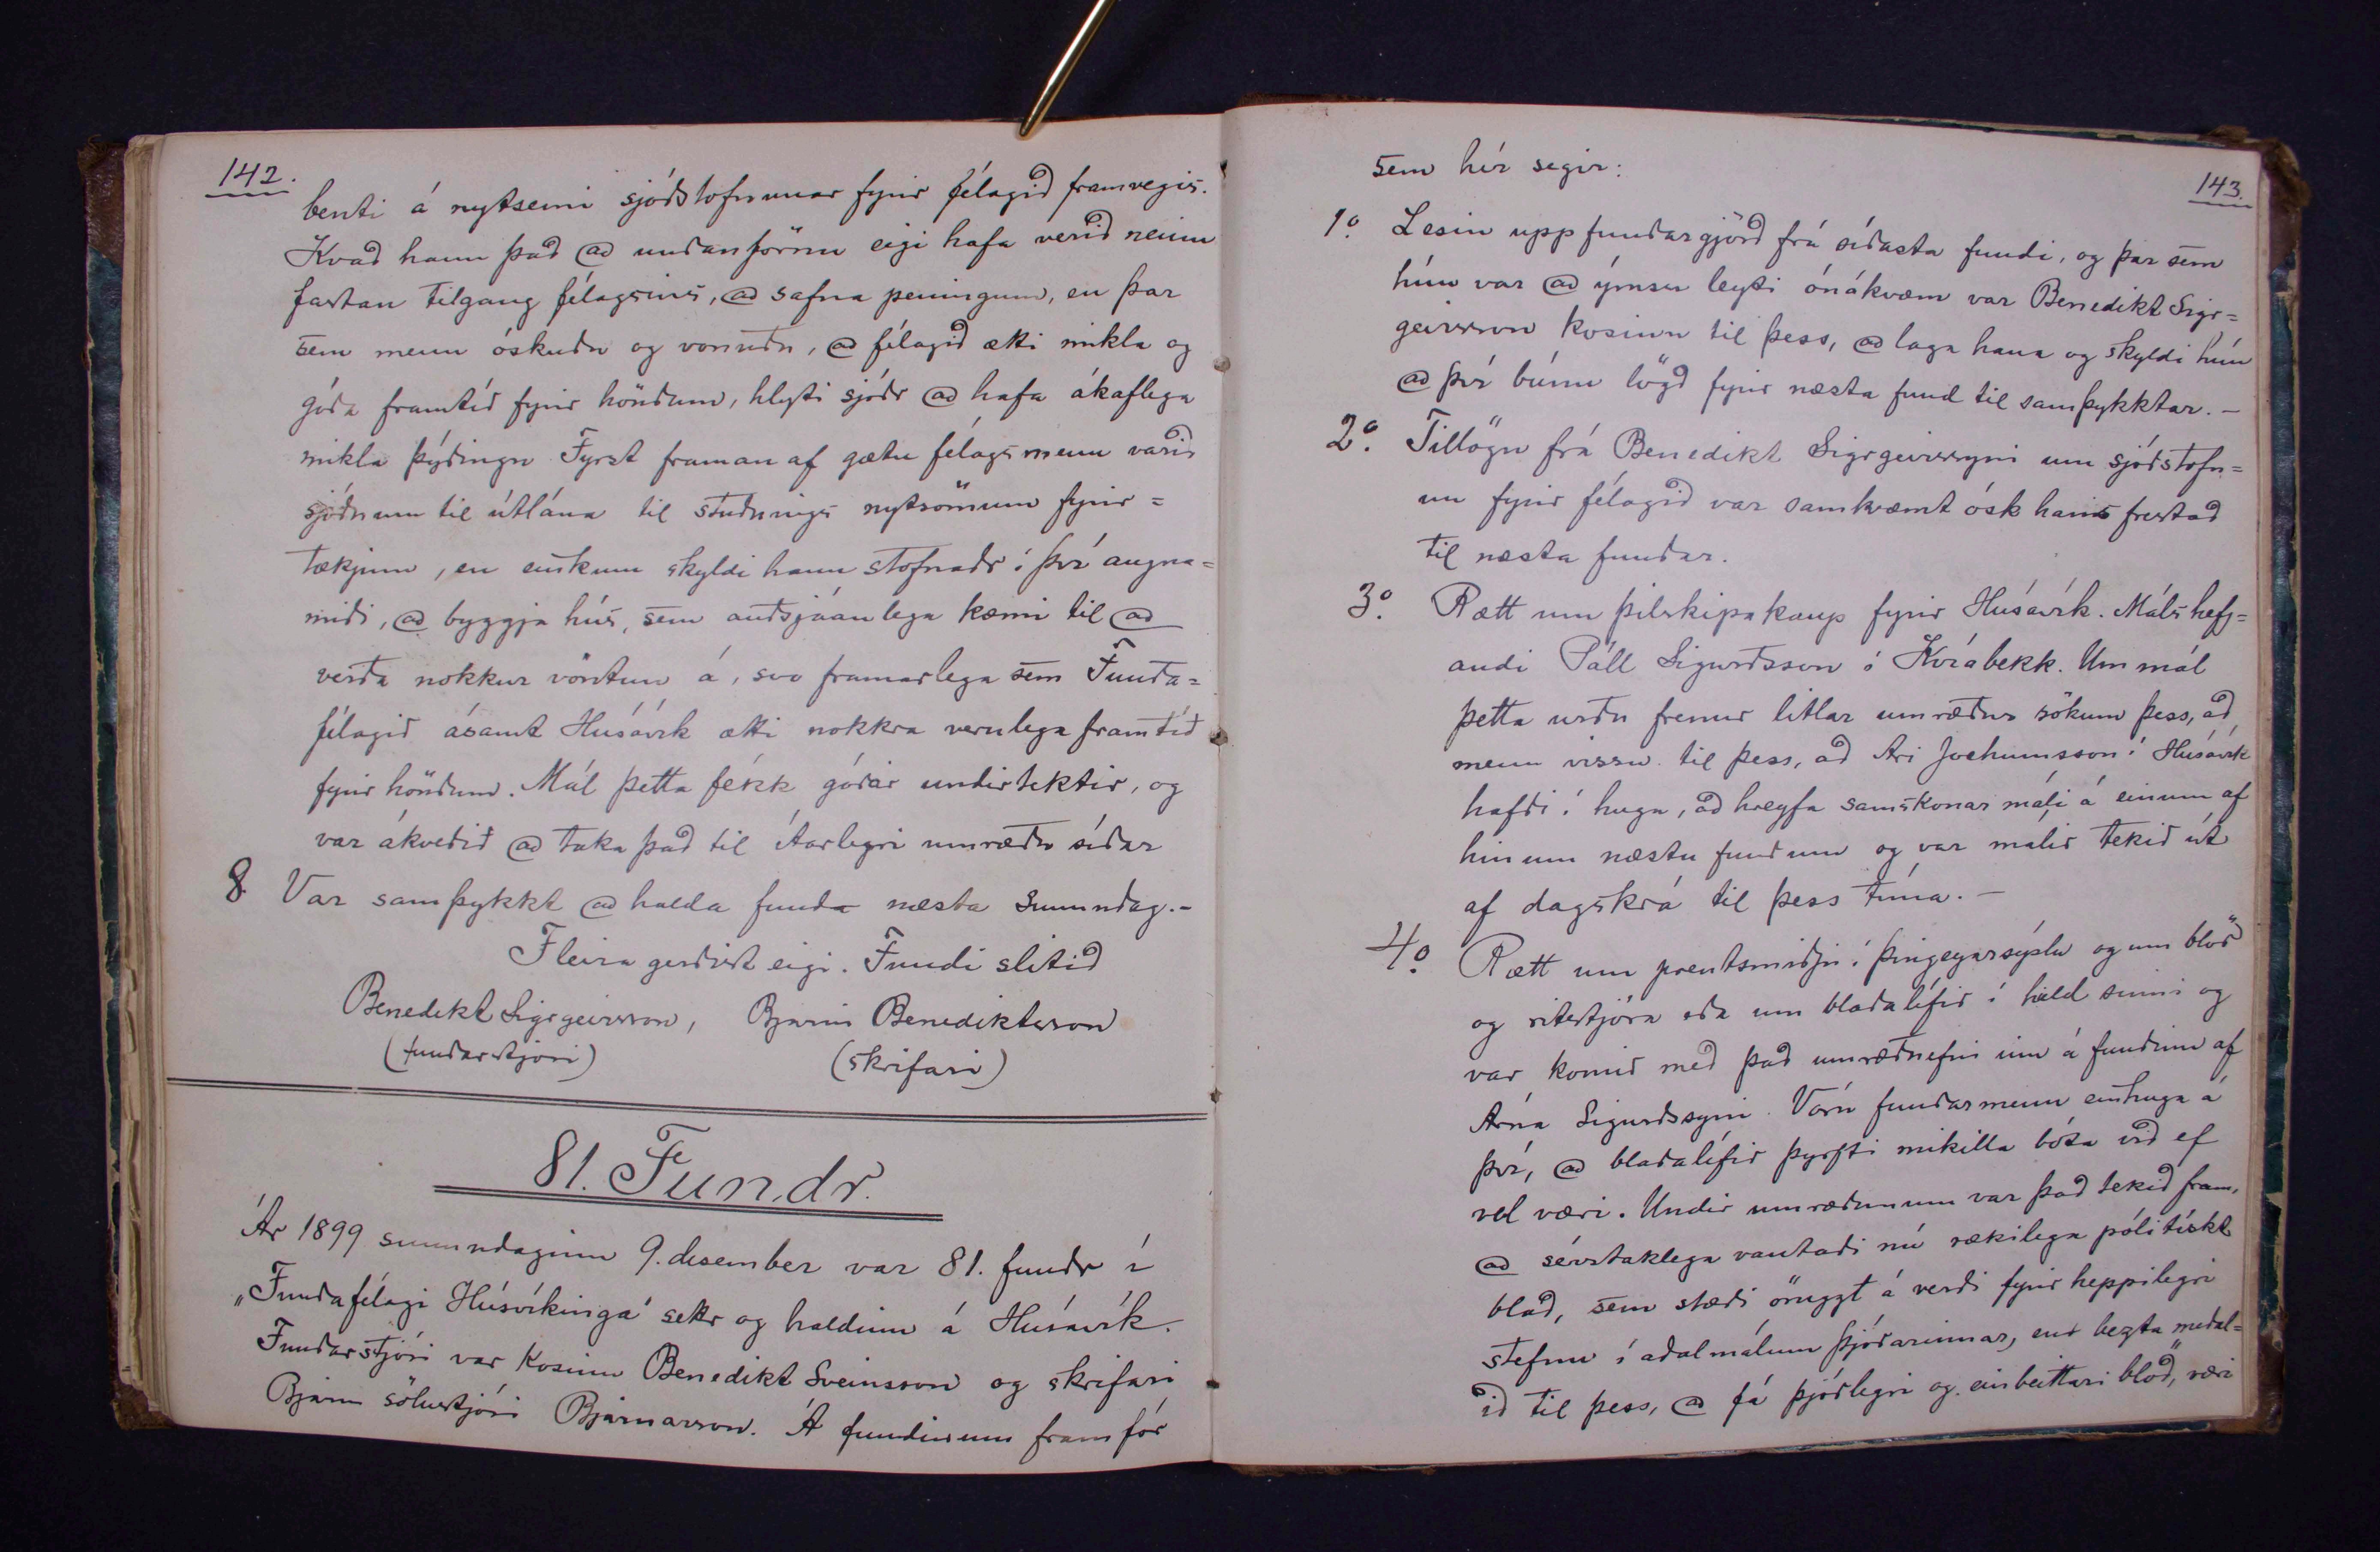 142.
benti á nytsemi sjóðstofnunar fyrir félagið framvegis.
Kvað hann það að undanförnu eigi hafa verið neinn
fastan tilgang félagsins, að safna peningum, en þar
sem menn óskuðu og vonuðu, að félagið ætti mikla og
góða framtíð fyrir höndum, hlyti sjóðr að hafa ákaflega
mikla þýðingu Fyrst framan af gætu félagsmenn varið
sjóðnum til útlána til stuðnings nytsömum fyrir=
tækjum, en einkum skyldi hann stofnaðr í því augna=
miði, að byggja hús, sem auðsjáanlega kæmi til að
verða nokkur vöntun á, svo framarlega sem Funda=
félagið ásamt Húsavík ætti nokkra verulega framtíð
fyrir höndum. Mál þetta fékk góðar undirtektir, og
var ákveðið að taka það til ítarlegri umræðu síðar
8 Var samþykkt að halda fund næsta sunnudag.-
Fleira gerðist eigi. Fundi slitið
Benedikt Sigrgeirsson, Bjarni Benediktsson
(fundarstjóri) (skrifari)
81. Fundr.
Ár 1899 sunnudaginn 9. desember var 81. fundr í
„Fundafélagi Húsvíkinga" settr og haldinn á Húsavík.
Fundarstjóri var kosinn Benedikt Sveinsson og skrifari
Bjarni sölustjóri Bjarnarson. Á fundinum fram fór
143.
sem hér segir:
1º. Lesin upp fundargjörð frá síðasta fundi, og þar sem
hún var að ýmsu leyti ónákvæm var Benedikt Sigr=
geirsson kosinn til þess, að laga hana og skyldi hún
að því búnu lögð fyrir næsta fund til samþykktar. -
2º. Tillögu frá Benedikt Sigrgeirssyni um sjóðstofn=
un fyrir félagið var samkvæmt ósk hans frestað
til næsta fundar.
3º. Rætt um þilskipakaup fyrir Húsavík. Málshefj=
andi Páll Sigurðsson á Kvíabekk. Um mál
þetta urðu fremur litlar umræður sökum þess, að
menn vissu til þess, að Ari Jochumsson í Húsavík
hafði í huga, að hreyfa samskonar máli á einum af
hinum næstu fundum og var málið tekið út
af dagskrá til þess tíma. -
4º. Rætt um prentsmiðju í Þingeyarsýslu og um blöð
og ritstjóra eða um blaðalífið í heild sinni og
var komið með það umræðuefni inn á fundinn af
Árna Sigurðssyni. Vóru fundarmenn einhuga á
því, að blaðalífið þyrfti mikilla bóta við ef
vel væri. Undir umræðunum var það tekið fram,
að sérstaklega vantaði nú rækilega pólitískt
blað, sem stæði öruggt á verði fyrir heppilegri
stefnu í aðalmálum þjóðarinnar, en bezta meðal=
ið til þess, að fá þjóðlegri og einbeittari blöð, væri